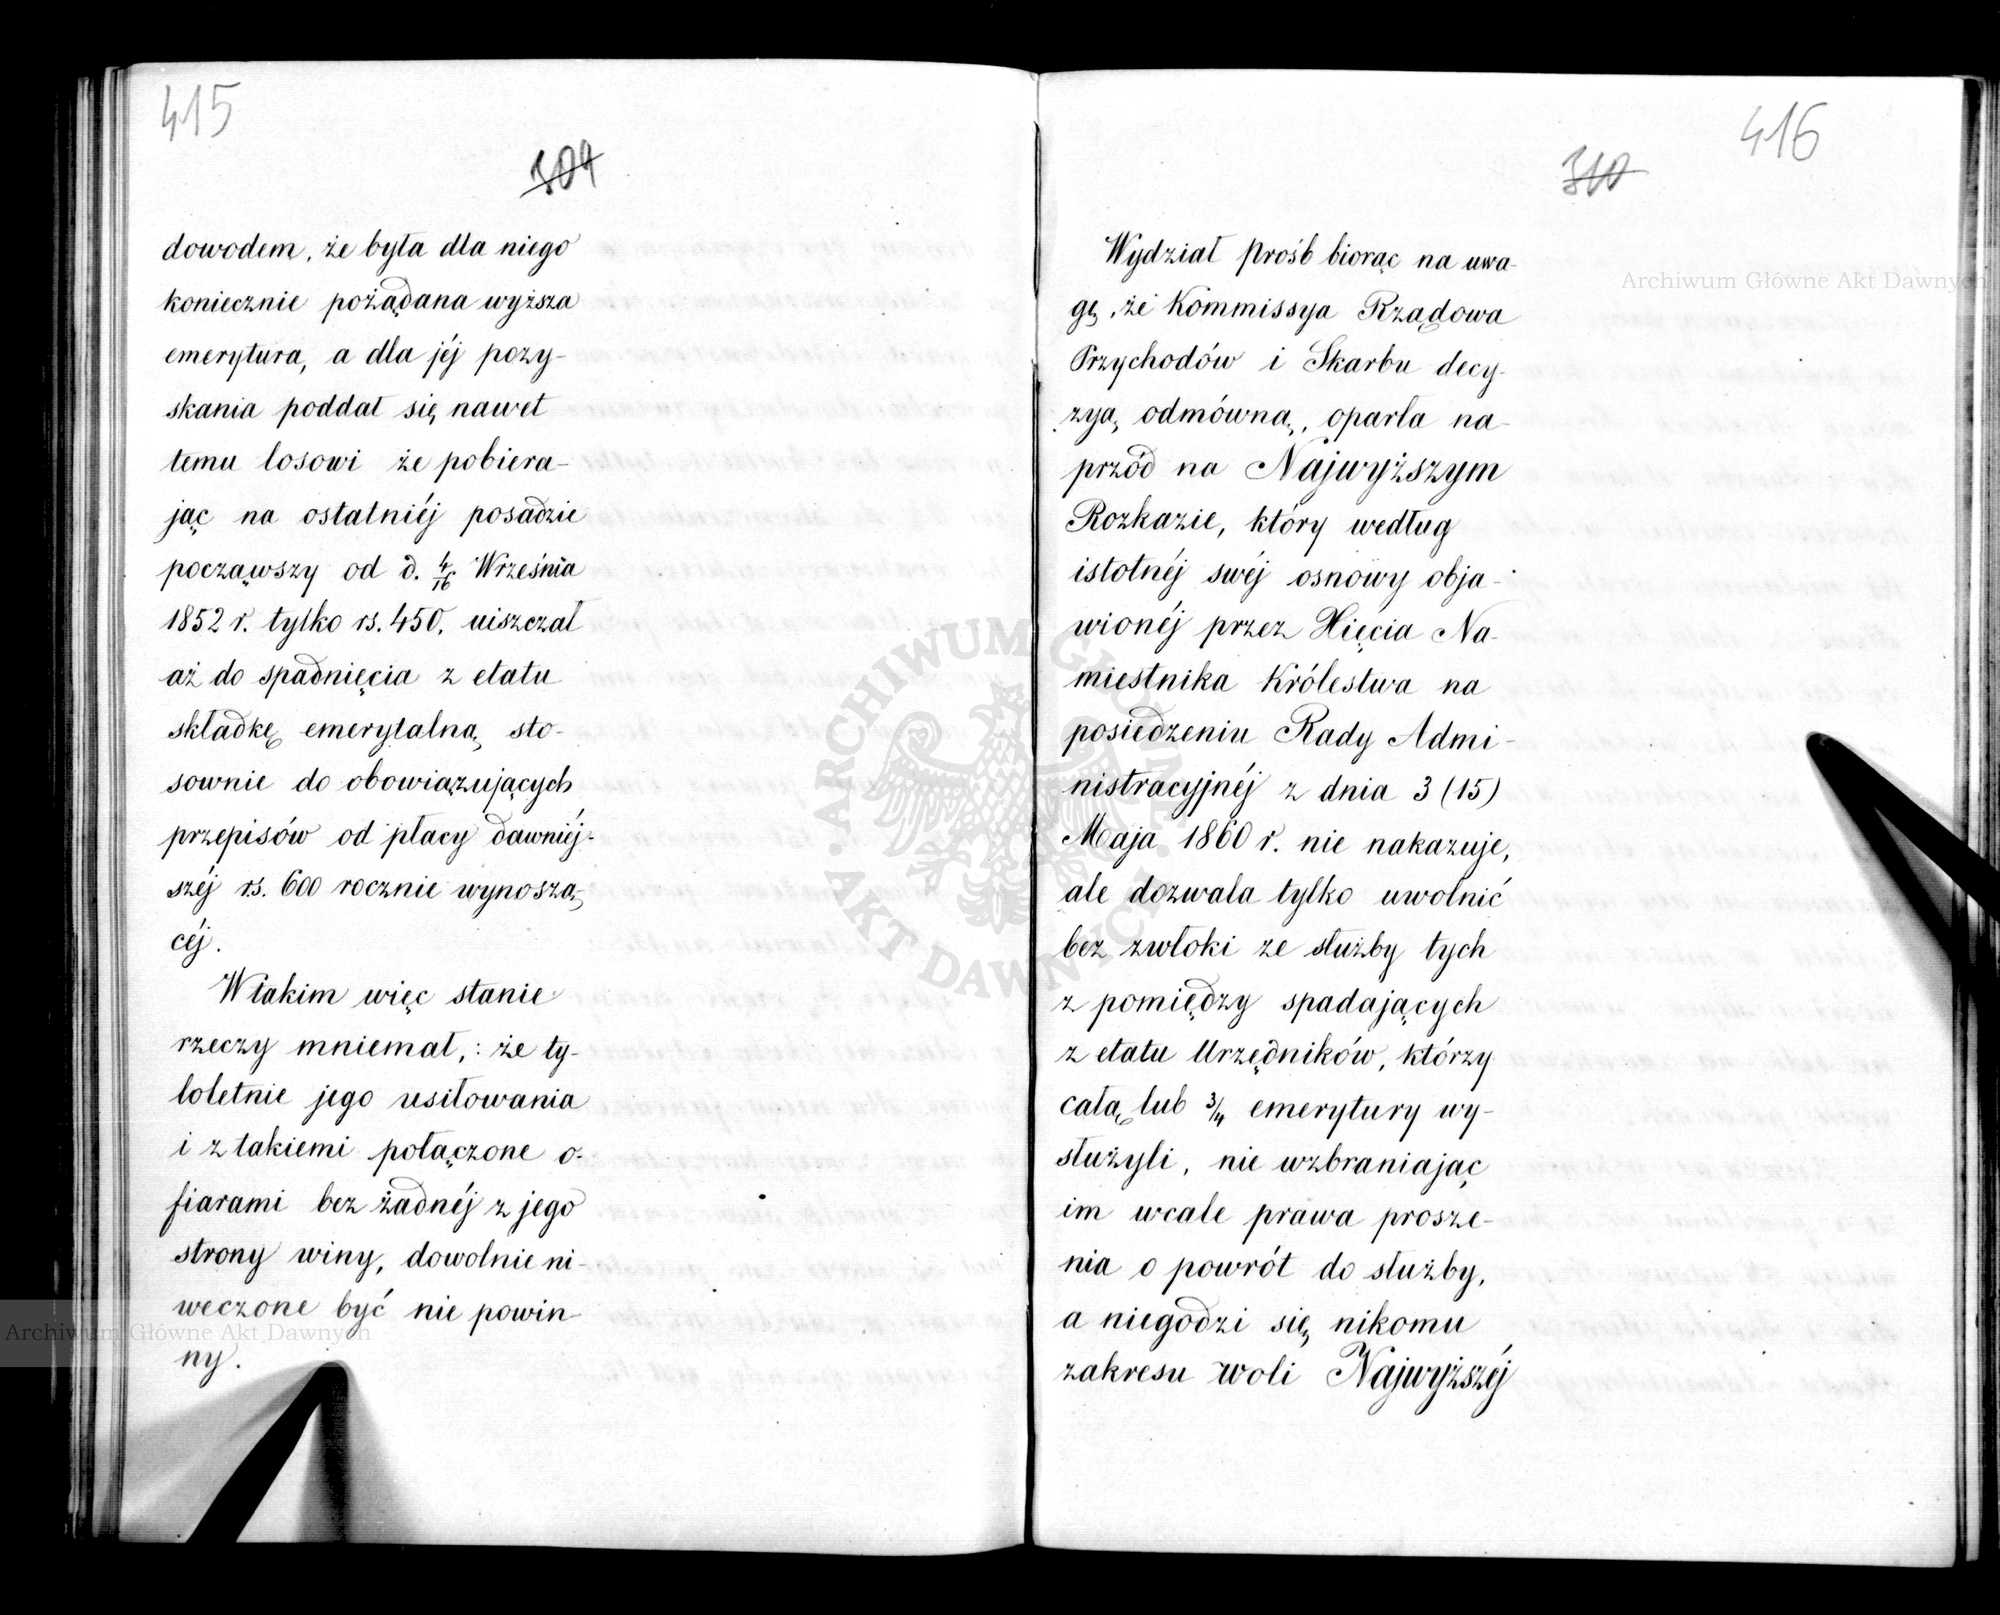 415
309
dowodem, że była dla niego
koniecznie pożądana wyższa
emerytura, a dla jéj pozy-
skania poddał się nawet
temu losowi że pobiera-
jąc na ostatniéj posadzie
począwszy od d. 4/16 Września
1852 r. tylko rs. 450. uiszczał
aż do spadnięcia z etatu
składkę emerytalną sto-
sownie do obowiązujących
przepisów od płacy dawniéj-
széj rs. 600 rocznie wynoszą-
céj.
W takim więc stanie
rzeczy mniemał,: że ty-
loletnie jego usiłowania
i z takiemi połączone o-
fiarami bez żadnéj z jego
strony winy, dowolnie ni-
weczone być nie powin-
ny.
416
310
Wydział Prośb biorąc na uwa-
gę, że Kommissya Rządowa
Przychodów i Skarbu decy-
zyą odmówną, oparła na-
przód na Najwyższym
Rozkazie, który według
istotnéj swéj osnowy obja-
wionéj przez Xięcia Na-
miestnika Królestwa na
posiedzeniu Rady Admi-
nistracyjnéj z dnia 3 (15)
Maja 1860 r. nie nakazuje,
ale dozwala tylko uwolnić
bez zwłoki ze służby tych
z pomiędzy spadających
z etatu Urzędników, którzy
całą lub 3/4 emerytury wy-
służyli, nie wzbraniając
im wcale prawa prosze-
nia o powrót do służby,
a niegodzi się nikomu
zakresu woli Najwyższéj
Archiwum Główne Akt Dawnych
Archiwum Główne Akt Dawnych
ARCHIWUM GŁÓWNE AKT DAWNYCH